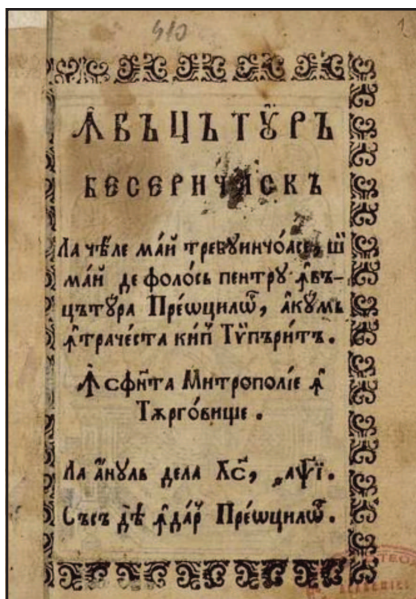 410
1
Ꙟвъцътꙋръ
бесеричѧскъ
Ла чѣле май тревꙋинчоасе, ши
май де фолось пентрꙋ ꙟвъ-
цътꙋра Преѡцилѡⷬ, акꙋмь
ꙟтрачеста кипⷭ Тѵпъритъ.
Ꙟсфинта Митрополіе ꙟ
Тѫрговище.
Ла анꙋль дела Хⷭ҇, ҂аѱі.
Съсъ дѣ ꙟдарⷬ Преѡцилѡⷬ.